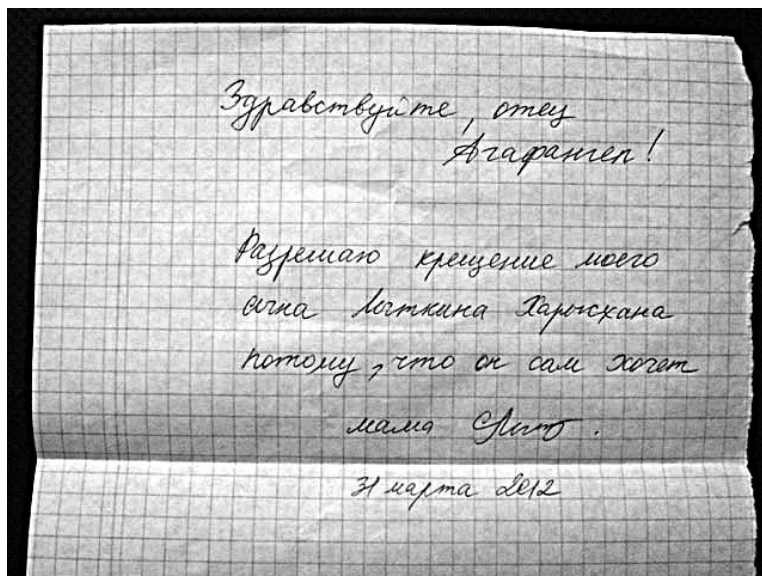 Здравствуйте, отец
Агафангел!
Разрешаю крещение моего
сына Лыткина Харысхана
потому, что он сам хочет
мама
31 марта 2012